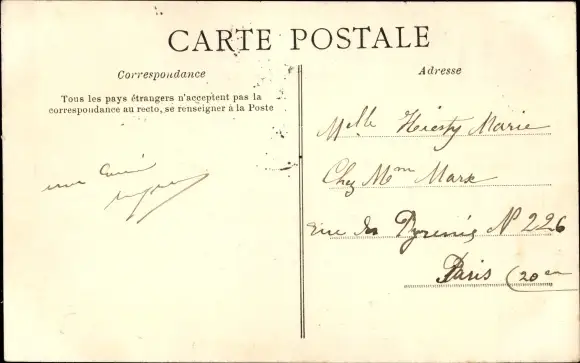 CARTE POSTALE
Correspondance
Tous les pays étrangers n'acceptent pas la
correspondance au recto, se renseigner à la Poste
Adresse
Melle Marie
Chez Mme Marx
rue des Pyrénées N° 226
Paris (20em